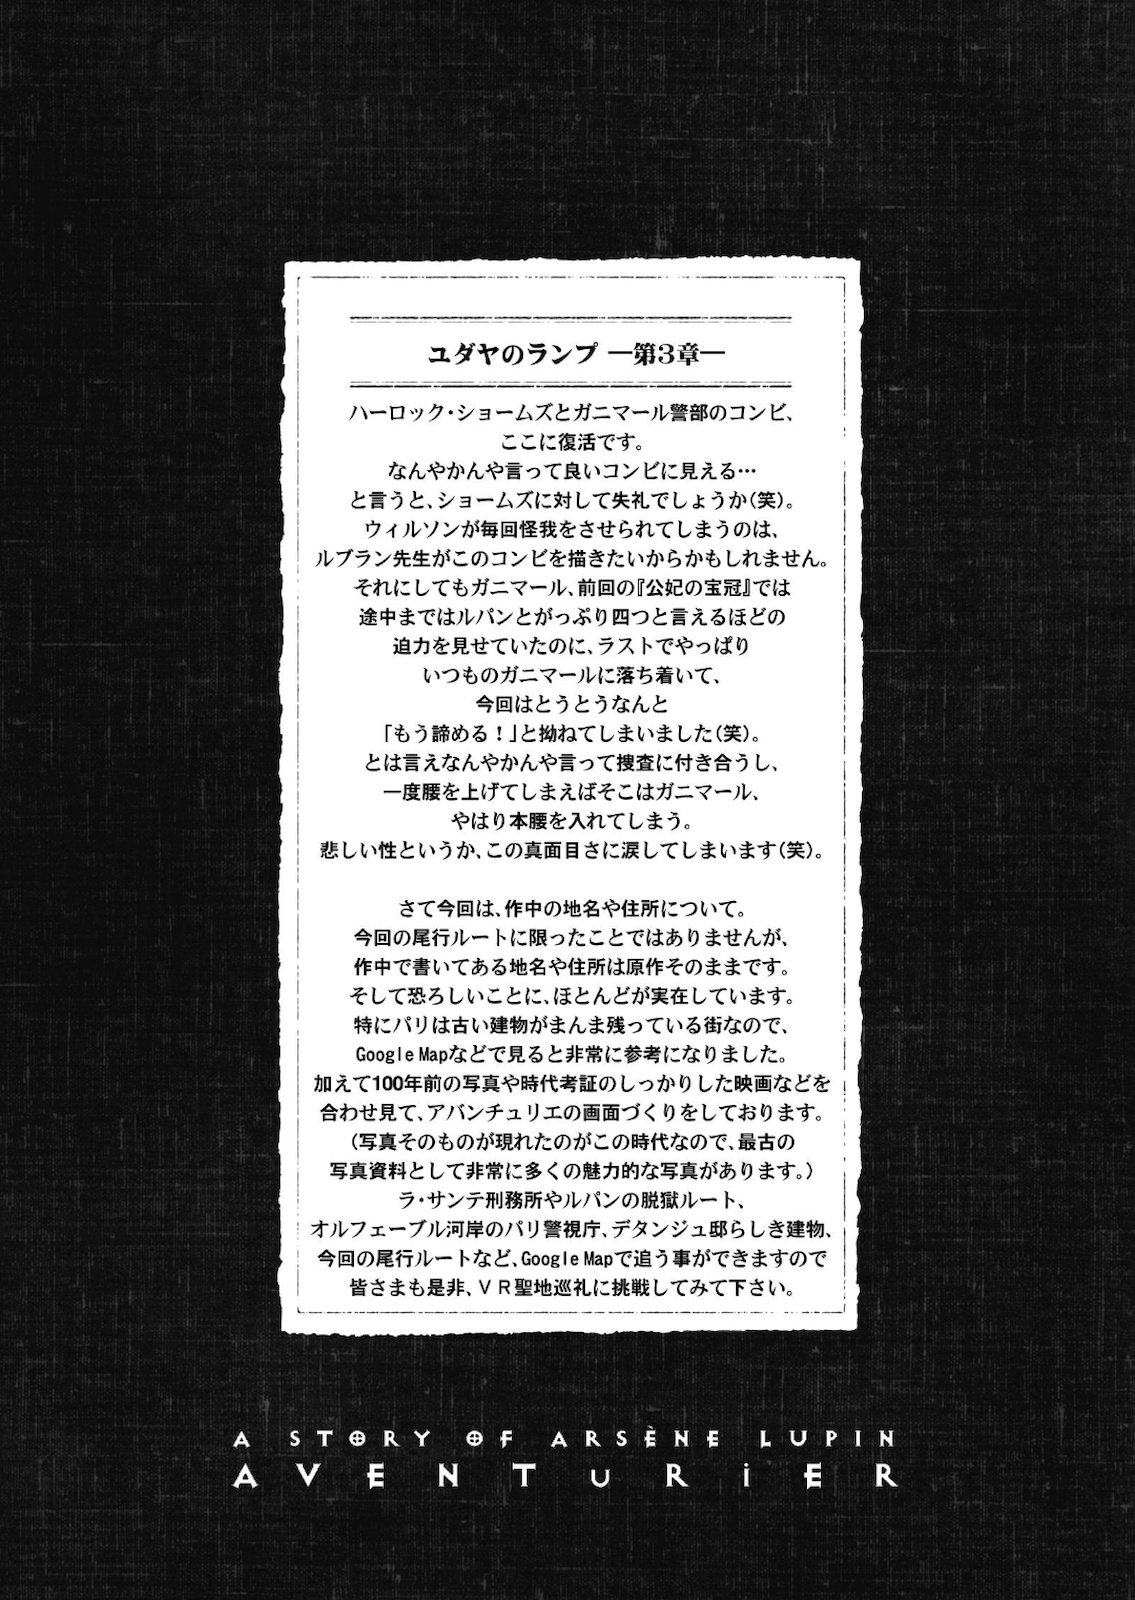 ユダヤのランプ ―第3章―
ハーロック・ショームズとガニマール警部のコンビ、
ここに復活です。
なんやかんや言って良いコンビに見える…
と言うと、ショームズに対して失礼でしょうか(笑)。
ウィルソンが毎回怪我をさせられてしまうのは、
ルブラン先生がこのコンビを描きたいからかもしれません。
それにしてもガニマール、前回の『公妃の宝冠』では
途中まではルパンとがっぷり四つと言えるほどの
迫力を見せていたのに、ラストでやっぱり
いつものガニマールに落ち着いて、
今回はとうとうなんと
「もう諦める!」と拗ねてしまいました(笑)。
とは言えなんやかんや言って捜査に付き合うし、
一度腰を上げてしまえばそこはガニマール、
やはり本腰を入れてしまう。
悲しい性というか、この真面目さに涙してしまいます(笑)。
さて今回は、作中の地名や住所について。
今回の尾行ルートに限ったことではありませんが、
作中で書いてある地名や住所は原作そのままです。
そして恐ろしいことに、ほとんどが実在しています。
特にパリは古い建物がまんま残っている街なので、
Google Mapなどで見ると非常に参考になりました。
加えて100年前の写真や時代考証のしっかりした映画などを
合わせ見て、アバンチュリエの画面づくりをしております。
(写真そのものが現れたのがこの時代なので、最古の
写真資料として非常に多くの魅力的な写真があります。)
ラ・サンテ刑務所やルパンの脱獄ルート、
オルフェーブル河岸のパリ警視庁、デタンジュ邸らしき建物、
今回の尾行ルートなど、Google Mapで追う事ができますので
皆さまも是非、VR聖地巡礼に挑戦してみて下さい。
A STORY OF ARSÈNE LUPIN
AVENTURiER